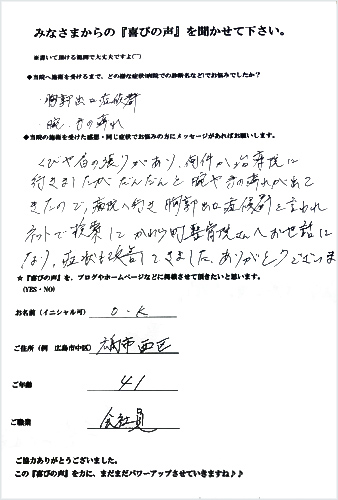 みなさまからの『喜びの声』を聞かせて下さい。
※書いて頂ける範囲で大丈夫ですよ(^^)
◆当院へ施術を受けるまで、どの様な症状(病院での診断名など)でお悩みでしたか？
・胸郭出口症候群
・腕、手の痺れ
◆当院の施術を受けた感想・同じ症状でお悩みの方にメッセージがあればお願いします。
くびや右の張りがあり、何件か治療院に
行きましたがだんだんと腕や手の痺れが出て
きたので、病院へ行き胸郭出口症候群と言われ
ネットで検索してかわら町整骨院さんへお世話に
なり、症状も改善してきました、ありがとうございま
★『喜びの声』を、ブログやホームページなどに掲載させて頂きたいと思います。
(YES・NO)
お名前（イニシャル可） O・K
ご住所（例 広島市中区） 広島市西区
ご年齢 41
ご職業 会社員
ご協力ありがとうございました。
この『喜びの声』を力に、まだまだパワーアップさせていきますね♪♪